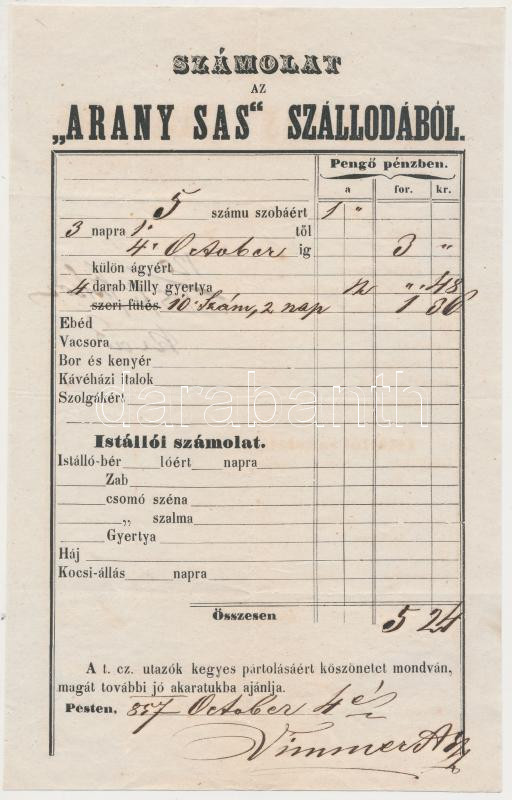 SZÁMOLAT
AZ
„ARANY SAS“ SZÁLLODÁBÓL.
Pengő pénzben.
a for. kr.
5 számu szobáért 1 "
3 napra 1ő től
4ő October ig 3 "
külön ágyért
4 darab Milly gyertya 12 " 48
szeri fütés 10 Szám, 2 nap 1 36
Ebéd
Vacsora
Bor és kenyér
Kávéházi italok
Szolgákért
darabanth
Istállói számolat.
Istálló-bér lóért napra
Zab
csomó széna
„ szalma
Gyertya
Háj
Kocsi-állás napra
Összesen 5 24
A t. cz. utazók kegyes pártolásáért köszönetet mondván,
magát további jó akaratukba ajánlja.
Pesten, 857 October 4
Vimmer